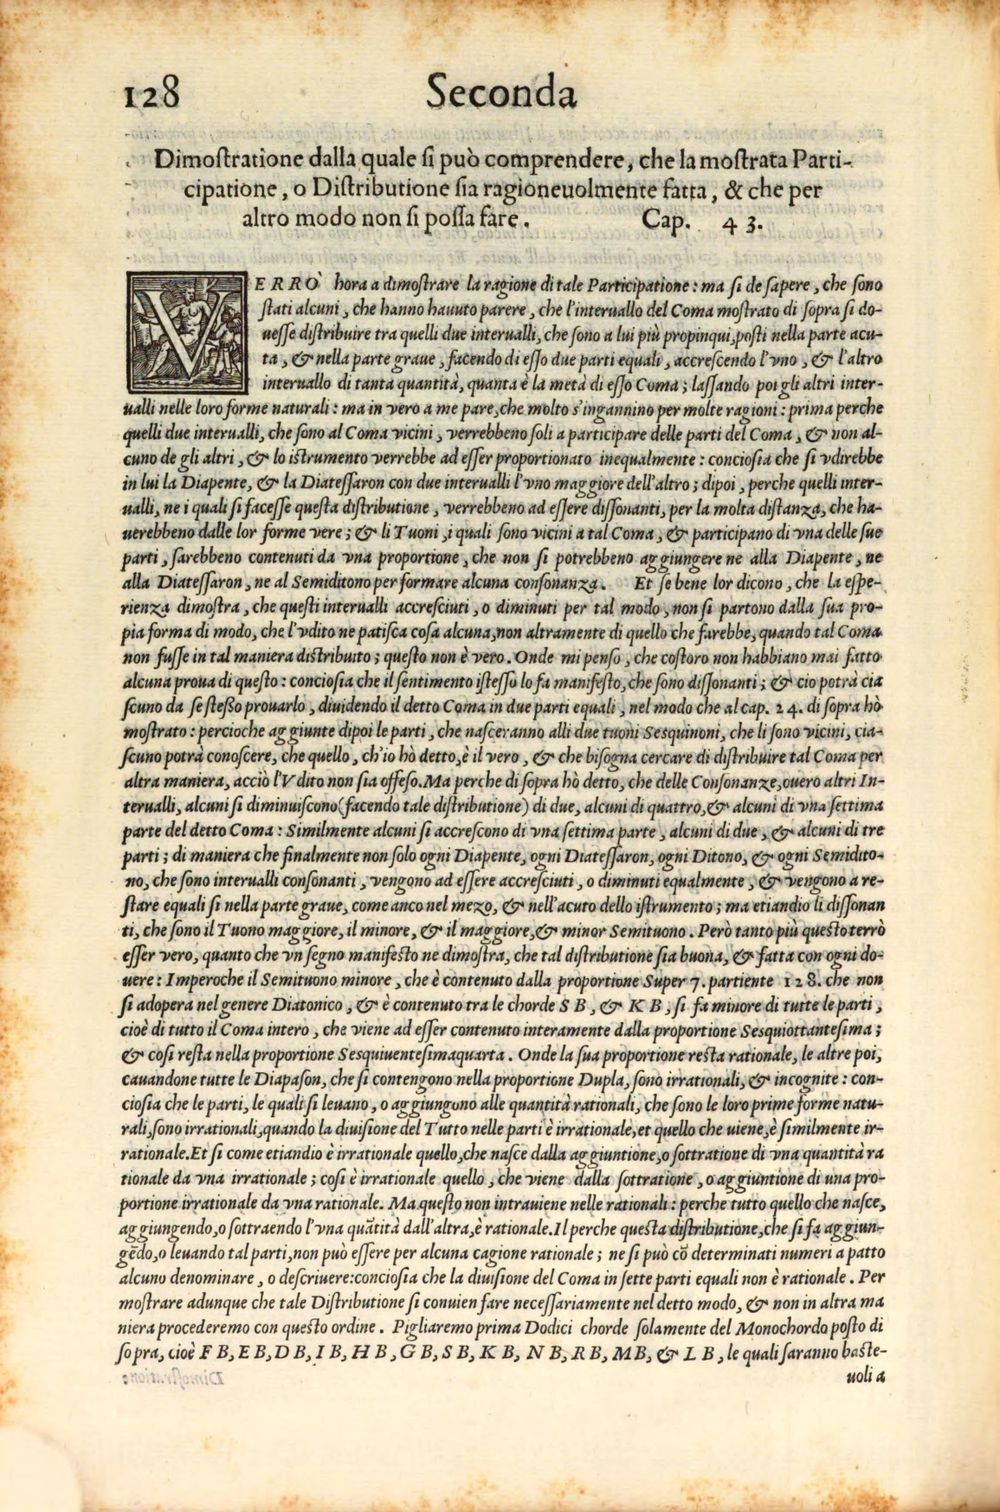 128 Seconda
Dimoſtratione dalla quale ſi può comprendere, che la moſtrata Parti-
cipatione, o Diſtributione ſia ragioneuolmente fatta, & che per
altro modo non ſi poſſa fare. Cap. 43.
VERRÒ hora a dimoſtrare la ragione di tale Participatione: ma ſi de ſapere, che ſono
ſtati alcuni, che hanno hauuto parere, che l'interuallo del Coma moſtrato di ſopra ſi do-
ueſſe diſtribuire tra quelli due interualli, che ſono a lui più propinqui, poſti nella parte acu-
ta, & nella parte graue, facendo di eſſo due parti equali, accreſcendo l'vno, & l'altro
interuallo di tanta quantità, quanta è la metà di eſſo Coma; laſſando poi gli altri inter-
ualli nelle loro forme naturali: ma in vero a me pare, che molto s'ingannino per molte ragioni: prima perche
quelli due interualli, che ſono al Coma vicini, verrebbeno ſoli a participare delle parti del Coma, & non al-
cuno de gli altri, & lo iſtrumento verrebbe ad eſſer proportionato inequalmente: concioſia che ſi vdirebbe
in lui la Diapente, & la Diateſſaron con due interualli l'vno maggiore dell'altro; dipoi, perche quelli inter-
ualli, ne i quali ſi faceſſe queſta diſtributione, verrebbeno ad eſſere diſſonanti, per la molta diſtanza, che ha-
uerebbeno dalle lor forme vere; & li Tuoni, i quali ſono vicini a tal Coma, & participano di vna delle ſue
parti, ſarebbeno contenuti da vna proportione, che non ſi potrebbeno aggiungere ne alla Diapente, ne
alla Diateſſaron, ne al Semiditono per formare alcuna conſonanza. Et ſe bene lor dicono, che la eſpe-
rienza dimoſtra, che queſti interualli accreſciuti, o diminuti per tal modo, non ſi partono dalla ſua pro-
pia forma di modo, che l'vdito ne patiſca coſa alcuna, non altramente di quello che farebbe, quando tal Coma
non fuſſe in tal maniera diſtribuito; queſto non è vero. Onde mi penſo, che coſtoro non habbiano mai fatto
alcuna proua di queſto: concioſia che il ſentimento iſteſſo lo fa manifeſto, che ſono diſſonanti; & cio potrà cia
ſcuno da ſe ſteſſo prouarlo, diuidendo il detto Coma in due parti equali, nel modo che al cap. 24. di ſopra hò
moſtrato: percioche aggiunte dipoi le parti, che naſceranno alli due tuoni Seſquinoni, che li ſono vicini, cia-
ſcuno potrà conoſcere, che quello, ch'io hò detto, è il vero, & che biſogna cercare di diſtribuire tal Coma per
altra maniera, acciò l'Vdito non ſia offeſo. Ma perche di ſopra hò detto, che delle Conſonanze, ouero altri In-
terualli, alcuni ſi diminuiſcono (facendo tale diſtributione) di due, alcuni di quattro, & alcuni di vna ſettima
parte del detto Coma: Similmente alcuni ſi accreſcono di vna ſettima parte, alcuni di due, & alcuni di tre
parti; di maniera che finalmente non ſolo ogni Diapente, ogni Diateſſaron, ogni Ditono, & ogni Semidito-
no, che ſono interualli conſonanti, vengono ad eſſere accreſciuti, o diminuti equalmente, & vengono a re-
ſtare equali ſi nella parte graue, come anco nel mezo, & nell'acuto dello iſtrumento; ma etiandio li diſſonan
ti, che ſono il Tuono maggiore, il minore, & il maggiore, & minor Semituono. Però tanto più queſto terrò
eſſer vero, quanto che vn ſegno manifeſto ne dimoſtra, che tal diſtributione ſia buona, & fatta con ogni do-
uere: Imperoche il Semituono minore, che è contenuto dalla proportione Super 7. partiente 128. che non
ſi adopera nel genere Diatonico, & è contenuto tra le chorde S B, & K B, ſi fa minore di tutte le parti,
cioè di tutto il Coma intero, che viene ad eſſer contenuto interamente dalla proportione Seſquiottanteſima;
& coſi reſta nella proportione Seſquiuenteſimaquarta. Onde la ſua proportione reſta rationale, le altre poi,
cauandone tutte le Diapaſon, che ſi contengono nella proportione Dupla, ſono irrationali, & incognite: con-
cioſia che le parti, le quali ſi leuano, o aggiungono alle quantità rationali, che ſono le loro prime forme natu-
rali, ſono irrationali, quando la diuiſione del Tutto nelle parti è irrationale, et quello che viene, è ſimilmente ir-
rationale. Et ſi come etiandio è irrationale quello, che naſce dalla aggiuntione, o ſottratione di vna quantità ra
tionale da vna irrationale; coſi è irrationale quello, che viene dalla ſottratione, o aggiuntione di vna pro-
portione irrationale da vna rationale. Ma queſto non intrauiene nelle rationali: perche tutto quello che naſce,
aggiungendo, o ſottraendo l'vna quātità dall'altra, è rationale. Il perche queſta diſtributione, che ſi fa aggiun-
gēdo, o leuando tal parti, non può eſſere per alcuna cagione rationale; ne ſi può cō determinati numeri a patto
alcuno denominare, o deſcriuere: concioſia che la diuiſione del Coma in ſette parti equali non è rationale. Per
moſtrare adunque che tale Diſtributione ſi conuien fare neceſſariamente nel detto modo, & non in altra ma
niera procederemo con queſto ordine. Pigliaremo prima Dodici chorde ſolamente del Monochordo poſto di
ſopra, cioè F B, E B, D B, I B, H B, G B, S B, K B, N B, R B, M B, & L B, le quali ſaranno baſte-
uoli a